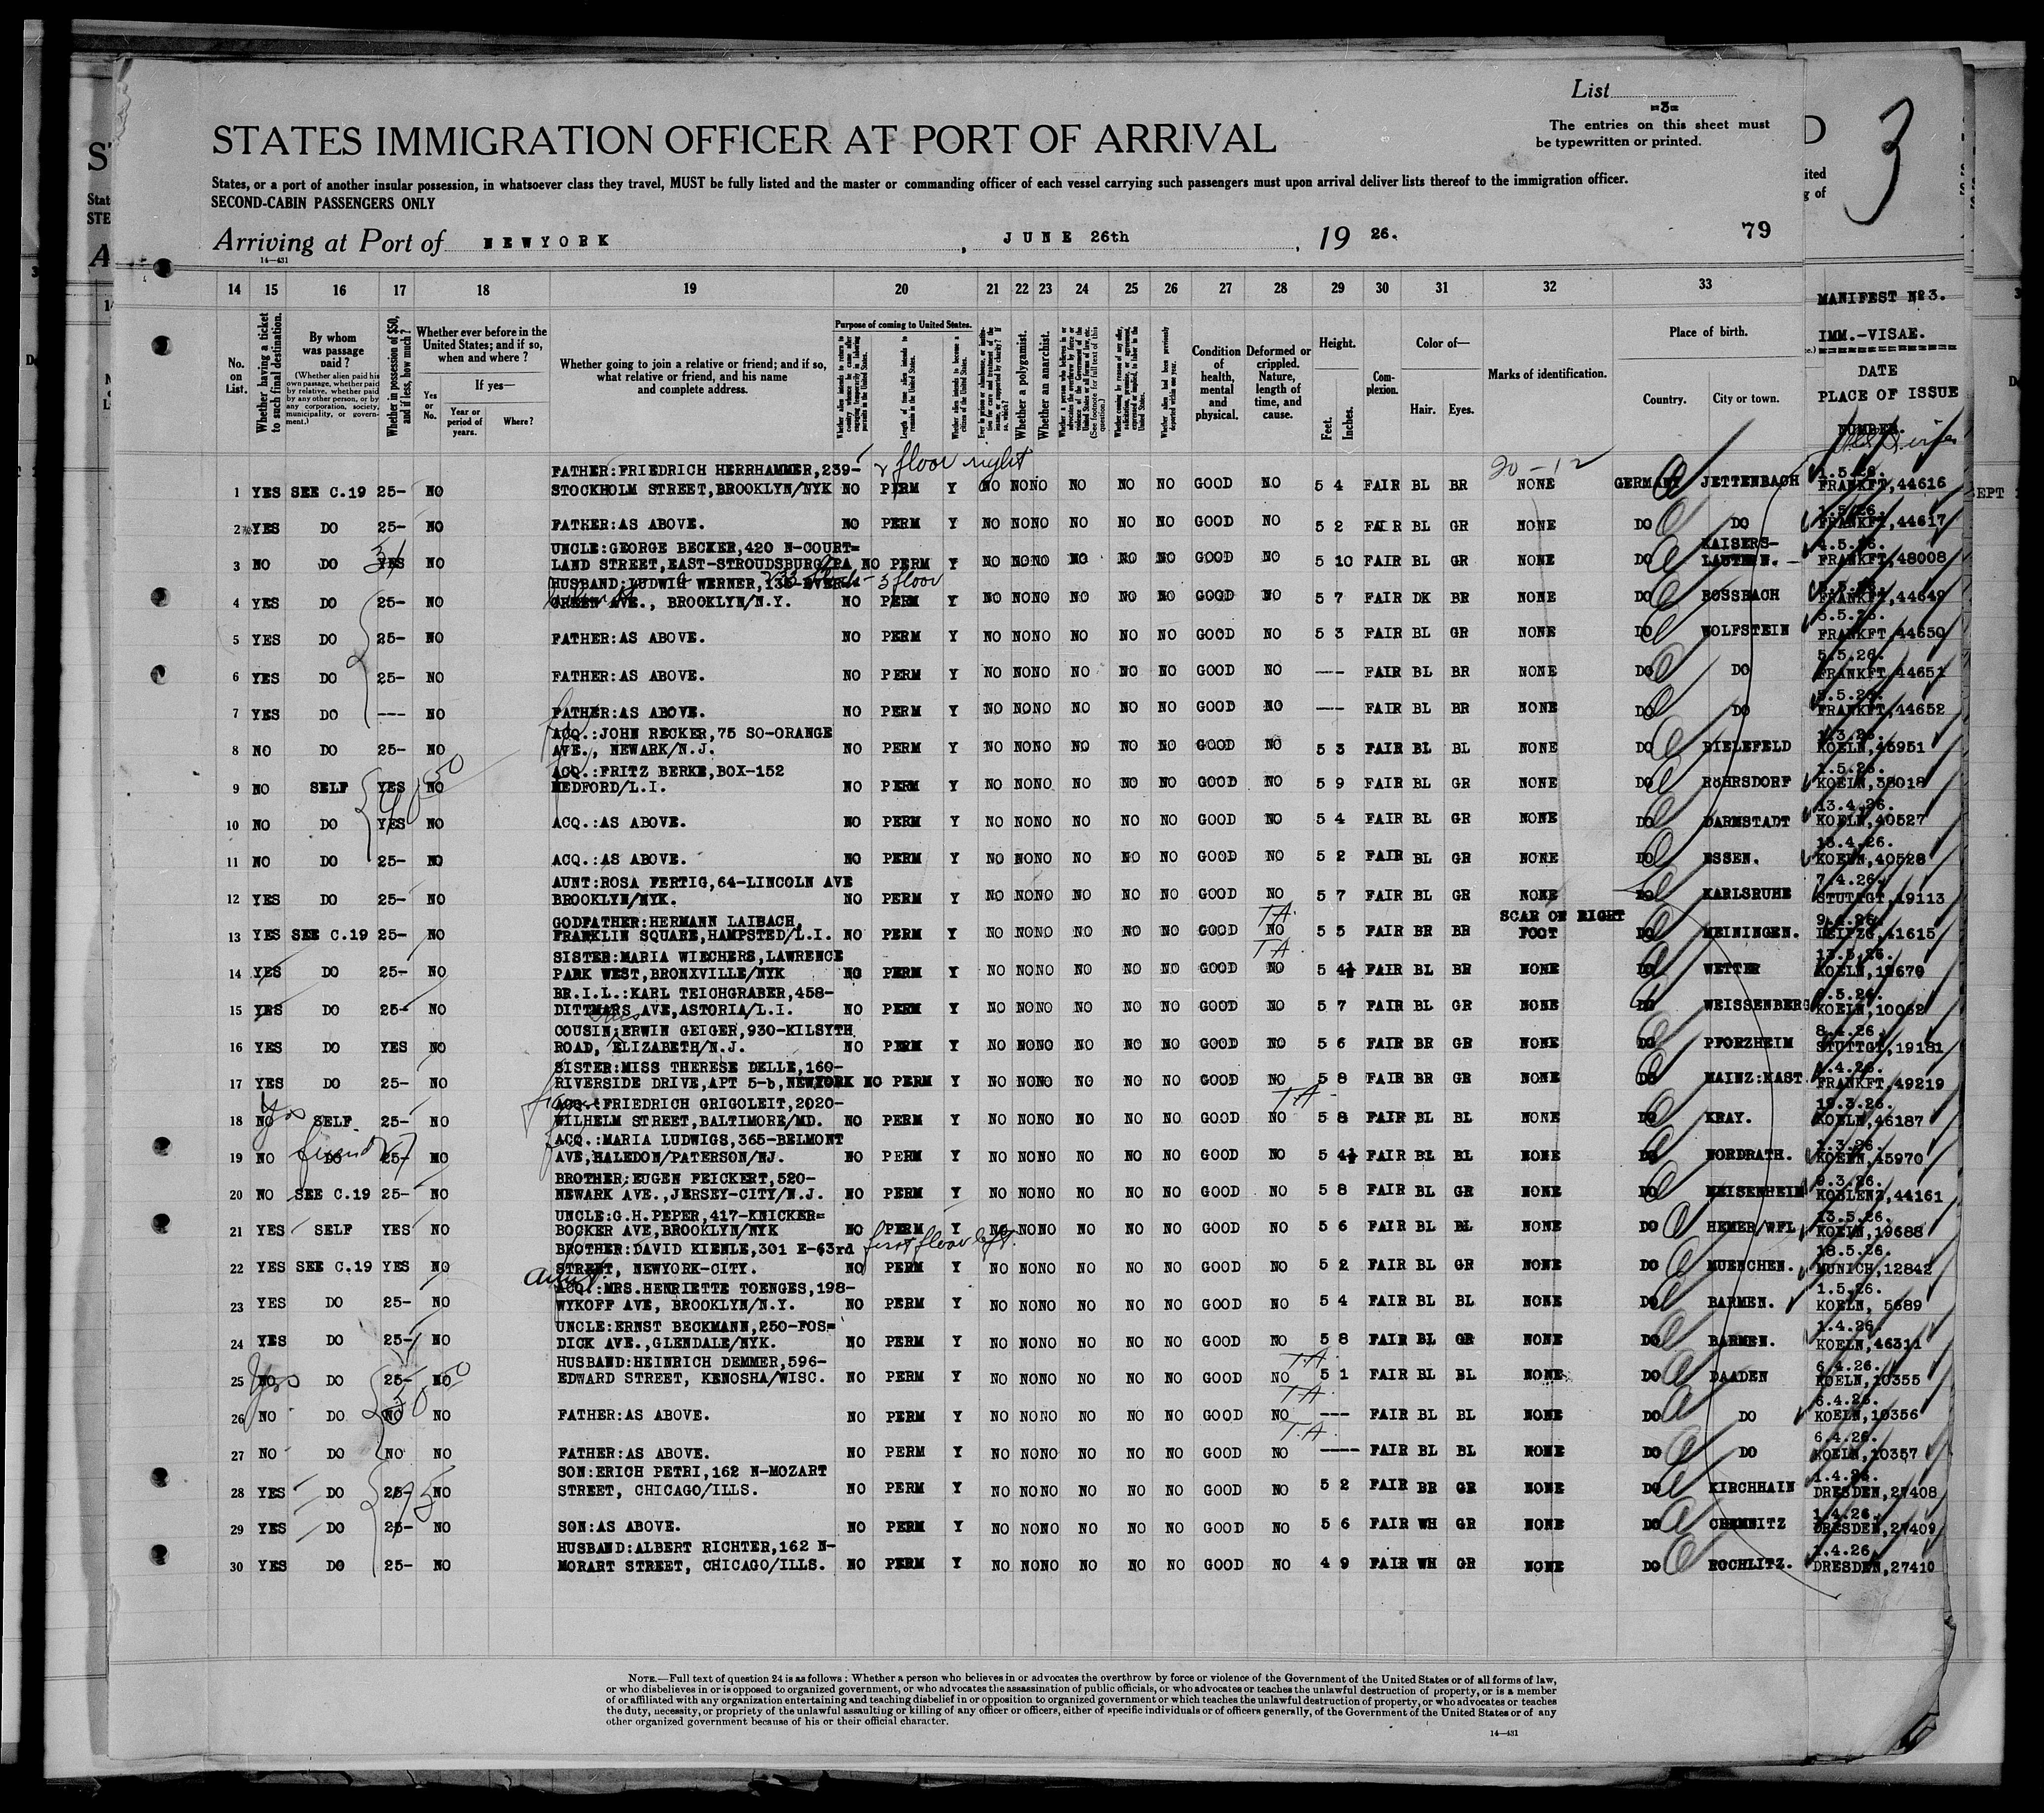 List
=3=
The entries on this sheet must
be typewritten or printed.
STATES IMMIGRATION OFFICER AT PORT OF ARRIVAL
3
States, or a port of another insular possession, in whatsoever class they travel, MUST be fully listed and the master or commanding officer of each vessel carrying such passengers must upon arrival deliver lists thereof to the immigration officer.
SECOND-CABIN PASSENGERS ONLY
Arriving at Port of NEWYORK, JUNE 26th, 1926.
79
14—431
14 15 16 17 18 19 20 21 22 23 24 25 26 27 28 29 30 31 32 33
MANIFEST Nº3.
IMM.-VISAE.
DATE
PLACE OF ISSUE
NUMBER.
No. on List.
Whether having a ticket to such final destination.
By whom was passage paid?
(Whether alien paid his own passage, whether paid by relative, whether paid by any other person, or by any corporation, society, municipality, or government.)
Whether in possession of $50, and if less, how much?
Whether ever before in the United States; and if so, when and where?
Yes or No.
If yes—
Year or period of years.
Where?
Whether going to join a relative or friend; and if so, what relative or friend, and his name and complete address.
Purpose of coming to United States.
Whether alien intends to return to country whence he came after engaging temporarily in laboring pursuits in the United States.
Length of time alien intends to remain in the United States.
Whether alien intends to become a citizen of the United States.
Whether a polygamist.
Whether an anarchist.
Condition of health, mental and physical.
Deformed or crippled. Nature, length of time, and cause.
Height.
Feet.
Inches.
Complexion.
Color of—
Hair.
Eyes.
Marks of identification.
Place of birth.
Country.
City or town.
2 floor right
20-12
FATHER:FRIEDRICH HERRHAMMER,239- 1.5.26.
1 YES SEE C.19 25- NO STOCKHOLM STREET,BROOKLYN/NYK NO PERM Y NO NO NO NO NO NO GOOD NO 5 4 FAIR BL BR NONE GERMANY JETTENBACH FRANKFT,44616
1.5.26.
2 YES DO 25- NO FATHER:AS ABOVE. NO PERM Y NO NO NO NO NO NO GOOD NO 5 2 FAIR BL GR NONE DO DO FRANKFT,44617
UNCLE:GEORGE BECKER,420 N-COURT= KAISERS- 4.5.26.
3 NO DO YES NO LAND STREET,EAST-STROUDSBURG/PA NO PERM Y NO NO NO NO NO NO GOOD NO 5 10 FAIR BL GR NONE DO LAUTERN. FRANKFT,48008
HUSBAND:LUDWIG WERNER,136-EVER= 3 floor 5.5.26.
4 YES DO 25- NO GREEN AVE., BROOKLYN/N.Y. NO PERM Y NO NO NO NO NO NO GOOD NO 5 7 FAIR DK BR NONE DO ROSSBACH FRANKFT,44649
5.5.26.
5 YES DO 25- NO FATHER:AS ABOVE. NO PERM Y NO NO NO NO NO NO GOOD NO 5 3 FAIR BL GR NONE DO WOLFSTEIN FRANKFT,44650
5.5.26.
6 YES DO 25- NO FATHER:AS ABOVE. NO PERM Y NO NO NO NO NO NO GOOD NO --- FAIR BL BR NONE DO DO FRANKFT,44651
5.5.26.
7 YES DO --- NO FATHER:AS ABOVE. NO PERM Y NO NO NO NO NO NO GOOD NO --- FAIR BL BR NONE DO DO FRANKFT,44652
ACQ.:JOHN RECKER,75 SO-ORANGE
8 NO DO 25- NO AVE., NEWARK/N.J. NO PERM Y NO NO NO NO NO NO GOOD NO 5 3 FAIR BL BL NONE DO BIELEFELD KOELN,45951
ACQ.:FRITZ BERKE,BOX-152 1.5.26.
9 NO SELF YES NO MEDFORD/L.I. NO PERM Y NO NO NO NO NO NO GOOD NO 5 9 FAIR BL GR NONE DO RÖHRSDORF KOELN,38018
13.4.26.
10 NO DO YES NO ACQ.:AS ABOVE. NO PERM Y NO NO NO NO NO NO GOOD NO 5 4 FAIR BL GR NONE DO DARMSTADT KOELN,40527
13.4.26.
11 NO DO 25- NO ACQ.:AS ABOVE. NO PERM Y NO NO NO NO NO NO GOOD NO 5 2 FAIR BL GR NONE DO ESSEN. KOELN,40528
AUNT:ROSA FERTIG,64-LINCOLN AVE 7.4.26.
12 YES DO 25- NO BROOKLYN/NYK. NO PERM Y NO NO NO NO NO NO GOOD NO 5 7 FAIR BL GR NONE DO KARLSRUHE STUTTGT,19113
GODFATHER:HERMANN LAIBACH, T.A. SCAR ON RIGHT 9.4.26.
13 YES SEE C.19 25- NO FRANKLIN SQUARE,HAMPSTED/L.I. NO PERM Y NO NO NO NO NO NO GOOD NO 5 5 FAIR BR BR FOOT DO MEININGEN. LEIPZG,41615
SISTER:MARIA WIECHERS,LAWRENCE T.A. 13.5.26.
14 YES DO 25- NO PARK WEST,BRONXVILLE/NYK NO PERM Y NO NO NO NO NO NO GOOD NO 5 4½ FAIR BL BR NONE DO WETTER KOELN,19679
BR.I.L.:KARL TEICHGRABER,458-
15 YES DO 25- NO DITTMARS AVE,ASTORIA/L.I. NO PERM Y NO NO NO NO NO NO GOOD NO 5 7 FAIR BL GR NONE DO WEISSENBERG KOELN,10062
COUSIN:ERWIN GEIGER,930-KILSYTH 8.4.26.
16 YES DO YES NO ROAD, ELIZABETH/N.J. NO PERM Y NO NO NO NO NO NO GOOD NO 5 6 FAIR BR GR NONE DO PFORZHEIM STUTTGT,19181
SISTER:MISS THERESE DELLE,160- 1.4.26.
17 YES DO 25- NO RIVERSIDE DRIVE,APT 5-b,NEWYORK NO PERM Y NO NO NO NO NO NO GOOD NO 5 8 FAIR BR GR NONE DO MAINZ:KAST. FRANKFT,49219
Yes ACQ.:FRIEDRICH GRIGOLEIT,2020- T.A. 19.3.26.
18 NO SELF 25- NO WILHELM STREET,BALTIMORE/MD. NO PERM Y NO NO NO NO NO NO GOOD NO 5 8 FAIR BL BL NONE DO KRAY. KOELN,46187
friend ACQ.:MARIA LUDWIGS,365-BELMONT 1.3.26.
19 NO DO 25- NO AVE,HALEDON/PATERSON/NJ. NO PERM Y NO NO NO NO NO NO GOOD NO 5 4½ FAIR BL BL NONE DO NORDRATH. KOELN,45970
BROTHER:EUGEN FEICKERT,520- 9.3.26.
20 NO SEE C.19 25- NO NEWARK AVE.,JERSEY-CITY/N.J. NO PERM Y NO NO NO NO NO NO GOOD NO 5 8 FAIR BL GR NONE DO MEISENHEIM KOBLENZ,44161
UNCLE:G.H.PEPER,417-KNICKER= 13.5.26.
21 YES SELF YES NO BOCKER AVE,BROOKLYN/NYK NO PERM Y NO NO NO NO NO NO GOOD NO 5 6 FAIR BL BL NONE DO HEMER/WFL KOELN,19688
BROTHER:DAVID KIENLE,301 E-63rd first floor left. 18.5.26.
22 YES SEE C.19 YES NO STREET, NEWYORK-CITY. NO PERM Y NO NO NO NO NO NO GOOD NO 5 2 FAIR BL GR NONE DO MUENCHEN. MUNICH,12842
aunt ACQ.:MRS.HENRIETTE TOENGES,198- 1.5.26.
23 YES DO 25- NO WYKOFF AVE, BROOKLYN/N.Y. NO PERM Y NO NO NO NO NO NO GOOD NO 5 4 FAIR BL BL NONE DO BARMEN. KOELN, 5689
UNCLE:ERNST BECKMANN,250-FOS= 1.4.26.
24 YES DO 25- NO DICK AVE.,GLENDALE/NYK. NO PERM Y NO NO NO NO NO NO GOOD NO 5 8 FAIR BL GR NONE DO BARMEN. KOELN,46311
Yes HUSBAND:HEINRICH DEMMER,596- T.A. 6.4.26.
25 NO DO 25- NO EDWARD STREET, KENOSHA/WISC. NO PERM Y NO NO NO NO NO NO GOOD NO 5 1 FAIR BL BL NONE DO DAADEN KOELN,10355
T.A. 6.4.26.
26 NO DO NO NO FATHER:AS ABOVE. NO PERM Y NO NO NO NO NO NO GOOD NO --- FAIR BL BL NONE DO DO KOELN,10356
T.A. 6.4.26.
27 NO DO NO NO FATHER:AS ABOVE. NO PERM Y NO NO NO NO NO NO GOOD NO ---- FAIR BL BL NONE DO DO KOELN,10357
SON:ERICH PETRI,162 N-MOZART 1.4.26.
28 YES DO 25- NO STREET, CHICAGO/ILLS. NO PERM Y NO NO NO NO NO NO GOOD NO 5 2 FAIR BR GR NONE DO KIRCHHAIN DRESDEN,27408
1.4.26.
29 YES DO 25- NO SON:AS ABOVE. NO PERM Y NO NO NO NO NO NO GOOD NO 5 6 FAIR WH GR NONE DO CHEMNITZ DRESDEN,27409
HUSBAND:ALBERT RICHTER,162 N- 1.4.26
30 YES DO 25- NO MORART STREET, CHICAGO/ILLS. NO PERM Y NO NO NO NO NO NO GOOD NO 4 9 FAIR WH GR NONE DO ROCHLITZ. DRESDEN,27410
NOTE.—Full text of question 24 is as follows: Whether a person who believes in or advocates the overthrow by force or violence of the Government of the United States or of all forms of law,
or who disbelieves in or is opposed to organized government, or who advocates the assassination of public officials, or who advocates or teaches the unlawful destruction of property, or is a member
of or affiliated with any organization entertaining and teaching disbelief in or opposition to organized government or which teaches the unlawful destruction of property, or who advocates or teaches
the duty, necessity, or propriety of the unlawful assaulting or killing of any officer or officers, either of specific individuals or of officers generally, of the Government of the United States or of any
other organized government because of his or their official character.
14—431